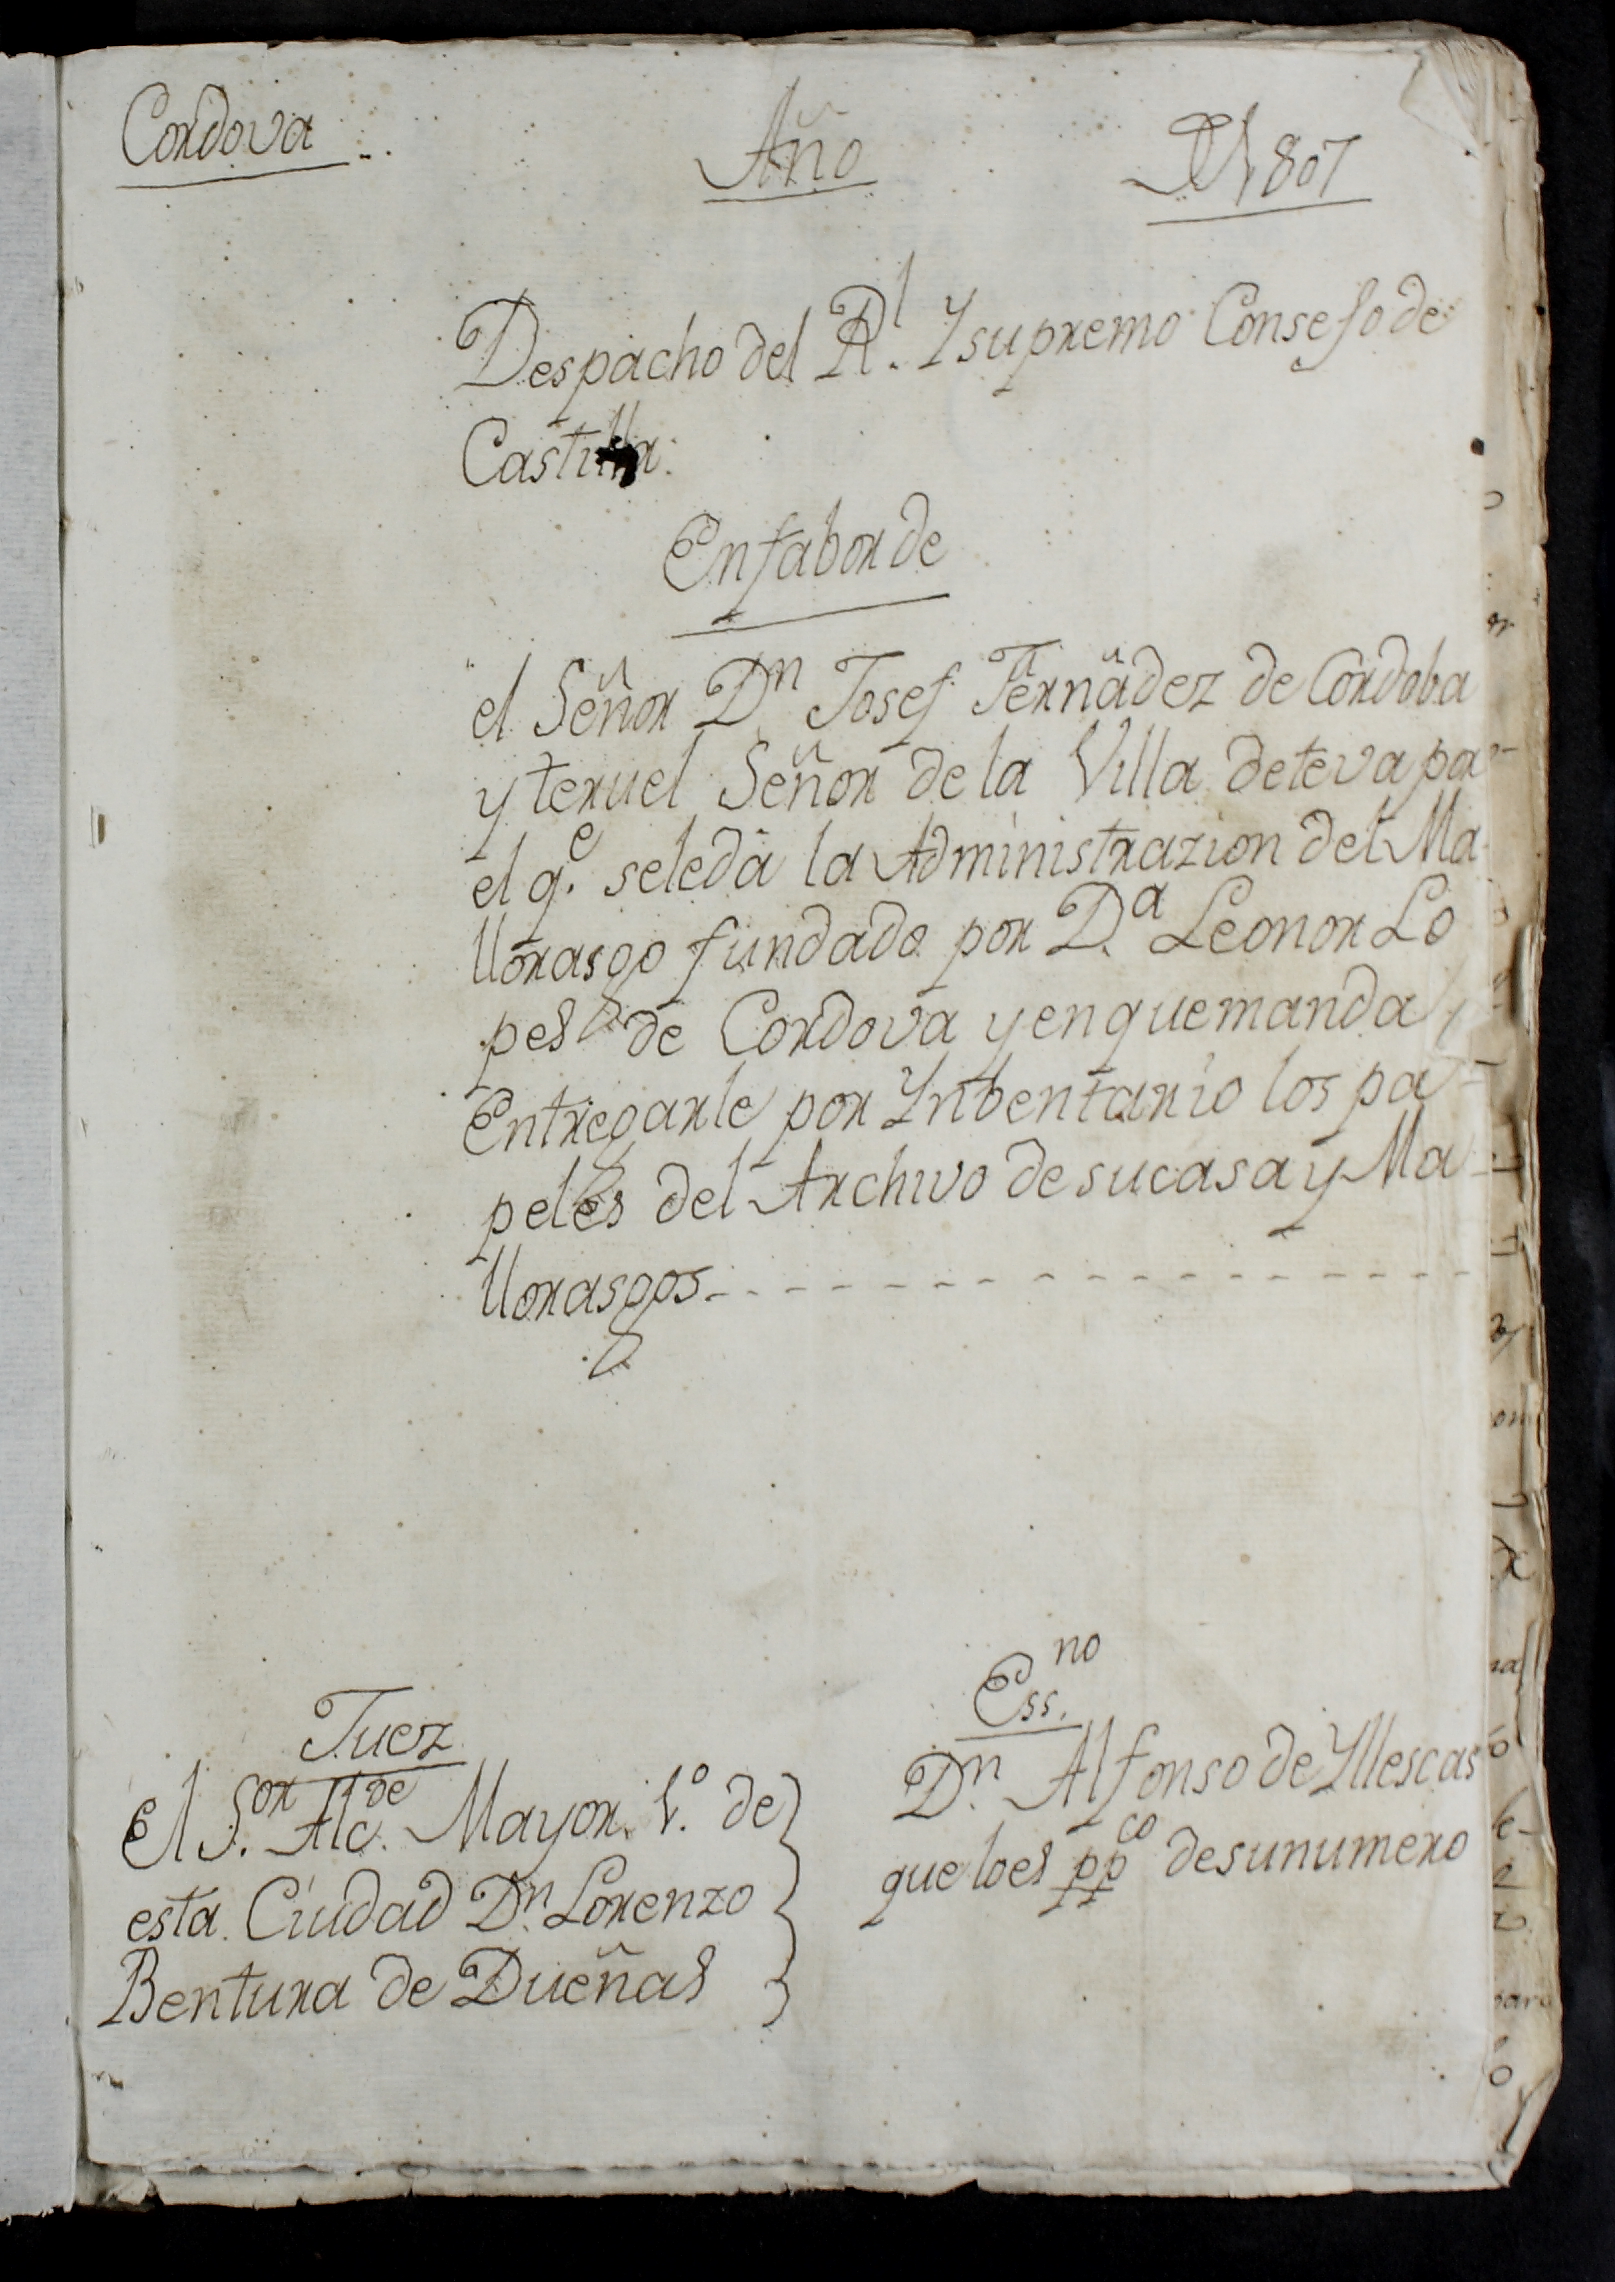 Cordova
Año
D 1807
Despacho del Rl. Ysupremo Consejo de
Castilla.
En fabor de
el Señor Dn Josef Fernãdez de Cordoba
y teruel Señor de la Villa deteva por
el qe. seleda la Administrazion del Ma
llorasgo fundado por Da. Leonor Lo
pes de Cordova y enque manda
Entregarle por Ynbentario los pa
peles del Archivo de sucasa y Ma
llorasgos
Juez
El Sor. Alcde. Mayor. 1º. de
esta Ciudad Dn. Lorenzo
Bentura de Dueñas
Essno.
Dn. Alfonso de Yllescas
que loes ppco desunumero